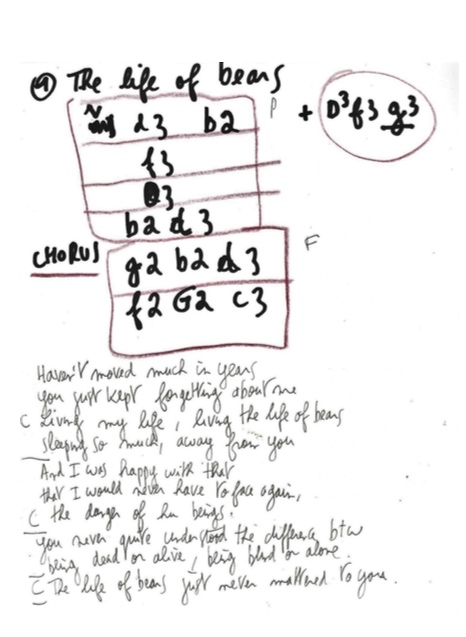 ④ The life of bears
d3 b2 P + D3 f3 g3
f3
3
b2 d3
CHORUS g2 b2 d3 F
f2 G2 C3
Haven't moved much in years
you just kept forgetting about me
C Living my life, living the life of bears
sleeping so much, away from you
And I was happy with that
that I would never have to face again,
C the danger of hu beings.
you never quite understood the difference btw
being dead or alive, being blind or alone.
C The life of bears just never mattered to you.